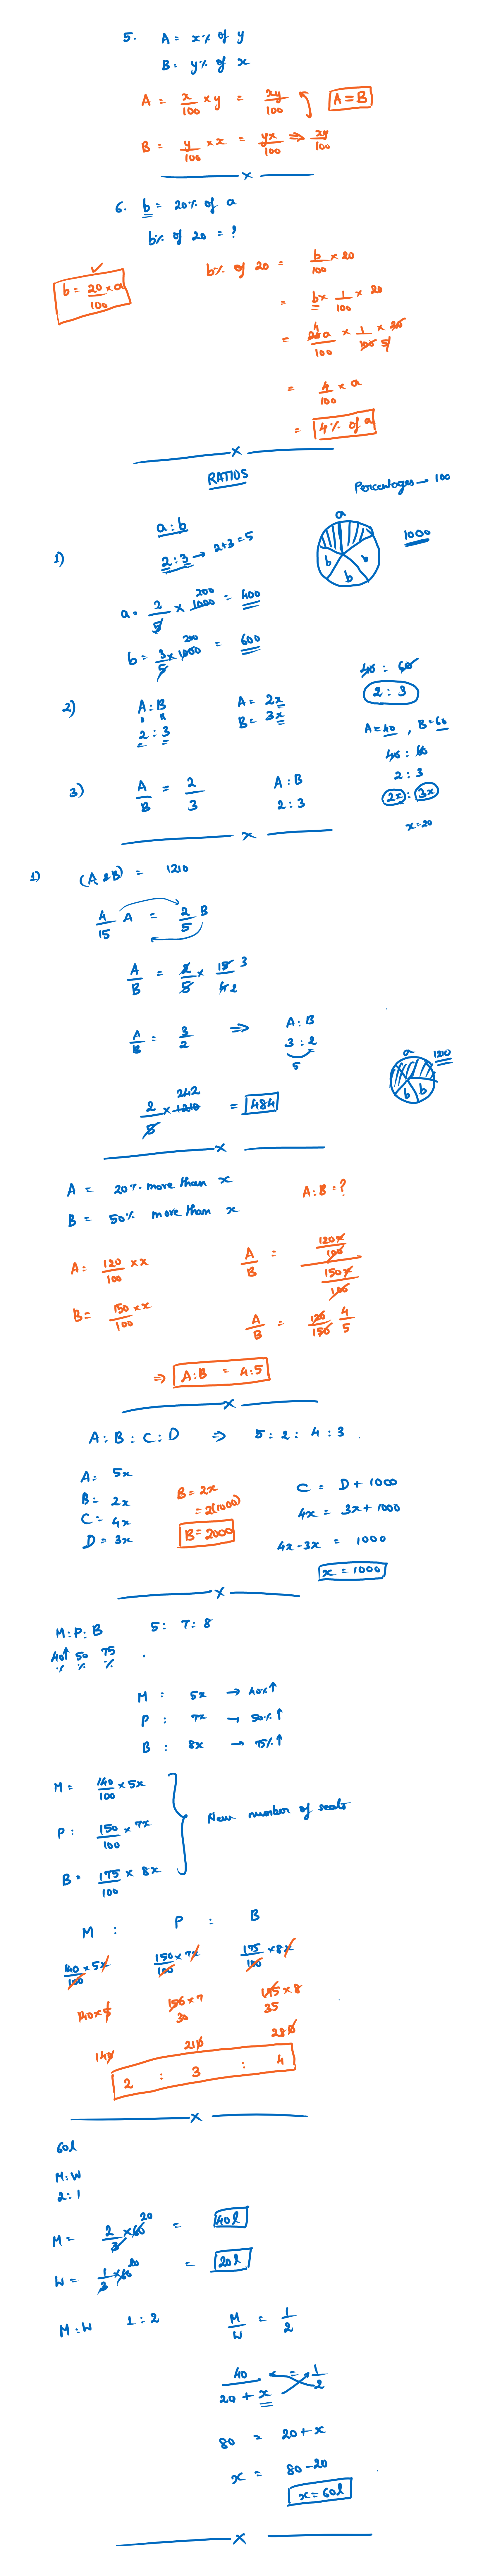 5. A = x% of y
B = y% of x
A = x/100 × y = xy/100 A = B
B = y/100 × x = yx/100 ⇒ xy/100
x
6. b = 20% of a
b% of 20 = ?
✓
b = 20/100 × a
b% of 20 = b/100 × 20
= b × 1/100 × 20
= 20a/100 × 1/100 × 20 4 5
= 4/100 × a
= 4% of a
x
RATIOS
Percentages → 100
a : b
1) 2 : 3 → 2+3 = 5
a b b b 1000
a = 2/5 × 1000 200 = 400
b = 3/5 × 1000 200 = 600
2) A : B A = 2x
2 : 3 B = 3x
40 : 60
2 : 3
A = 40 , B = 60
40 : 60
2 : 3
2x : 3x
x = 20
3) A/B = 2/3 A : B
2 : 3
x
1) (A & B) = 1210
4/15 A = 2/5 B
A/B = 2/5 × 15/4 3 2
A/B = 3/2 ⇒ A : B
3 : 2
5
a b b 1210
2/5 × 1210 242 = 484
x
A = 20% more than x
B = 50% more than x
A : B = ?
A = 120/100 × x
B = 150/100 × x
A/B = 120x/100 / 150x/100
A/B = 120/150 4/5
⇒ A : B = 4 : 5
x
A : B : C : D ⇒ 5 : 2 : 4 : 3 .
A = 5x
B = 2x
C = 4x
D = 3x
B = 2x
= 2(1000)
B = 2000
C = D + 1000
4x = 3x + 1000
4x - 3x = 1000
x = 1000
x
M : P : B 5 : 7 : 8
40↑ 50 75
% % %
M : 5x → 40% ↑
P : 7x → 50% ↑
B : 8x → 75% ↑
M = 140/100 × 5x
P : 150/100 × 7x
B = 175/100 × 8x
New number of seats
M : P : B
140/100 × 5x 150/100 × 7x 175/100 × 8x
140 × 5 150 × 7 175 × 8
30 35
140 210 280
2 : 3 : 4
x
60l
M : W
2 : 1
M = 2/3 × 60 20 = 40l
W = 1/3 × 60 20 = 20l
M : W 1 : 2 M/W = 1/2
40/20 + x = 1/2
80 = 20 + x
x = 80 - 20
x = 60l
x